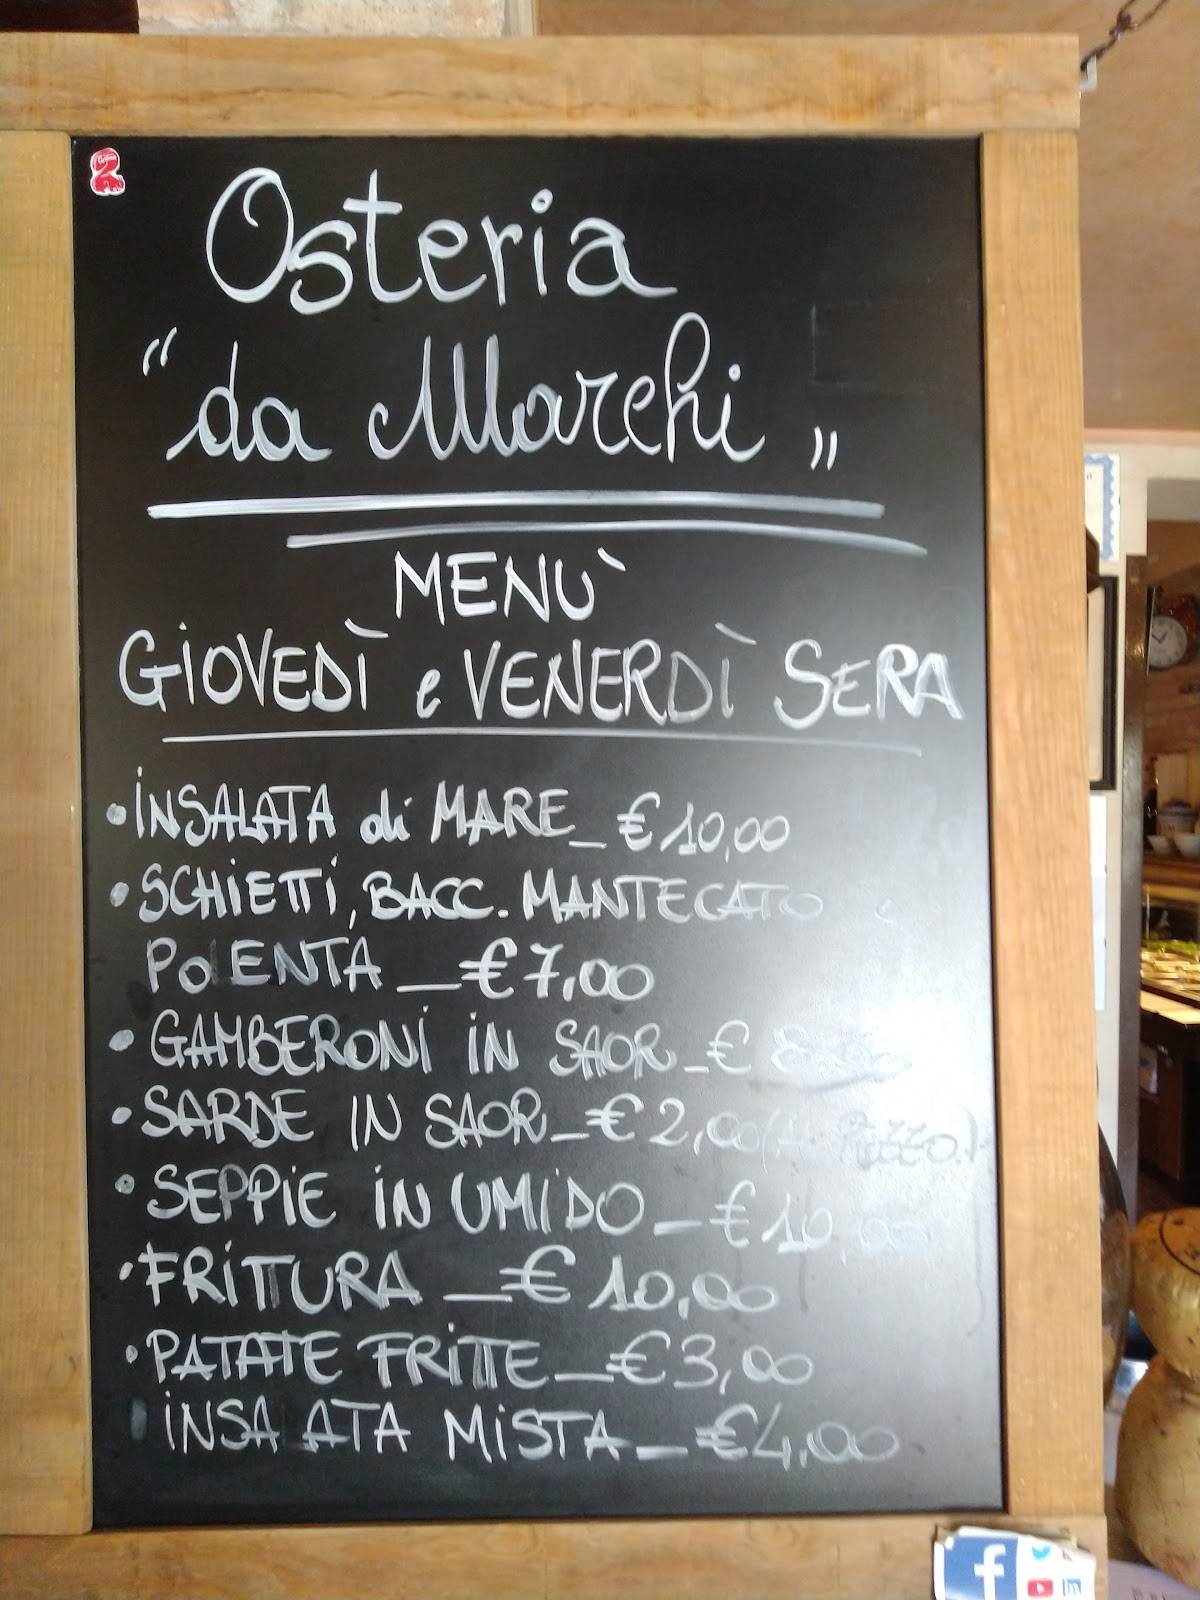 Osteria
“da Marchi„
MENÙ
GIOVEDÌ e VENERDÌ SERA
• INSALATA di MARE_€10,00
• SCHIETTI, BACC. MANTECATO e
POLENTA_€7,00
• GAMBERONI IN SAOR_€
• SARDE IN SAOR_€2,00(AL PEZZO)
• SEPPIE IN UMIDO_€10,00
• FRITTURA_€10,00
• PATATE FRITTE_€3,00
INSA ATA MISTA_€4,00